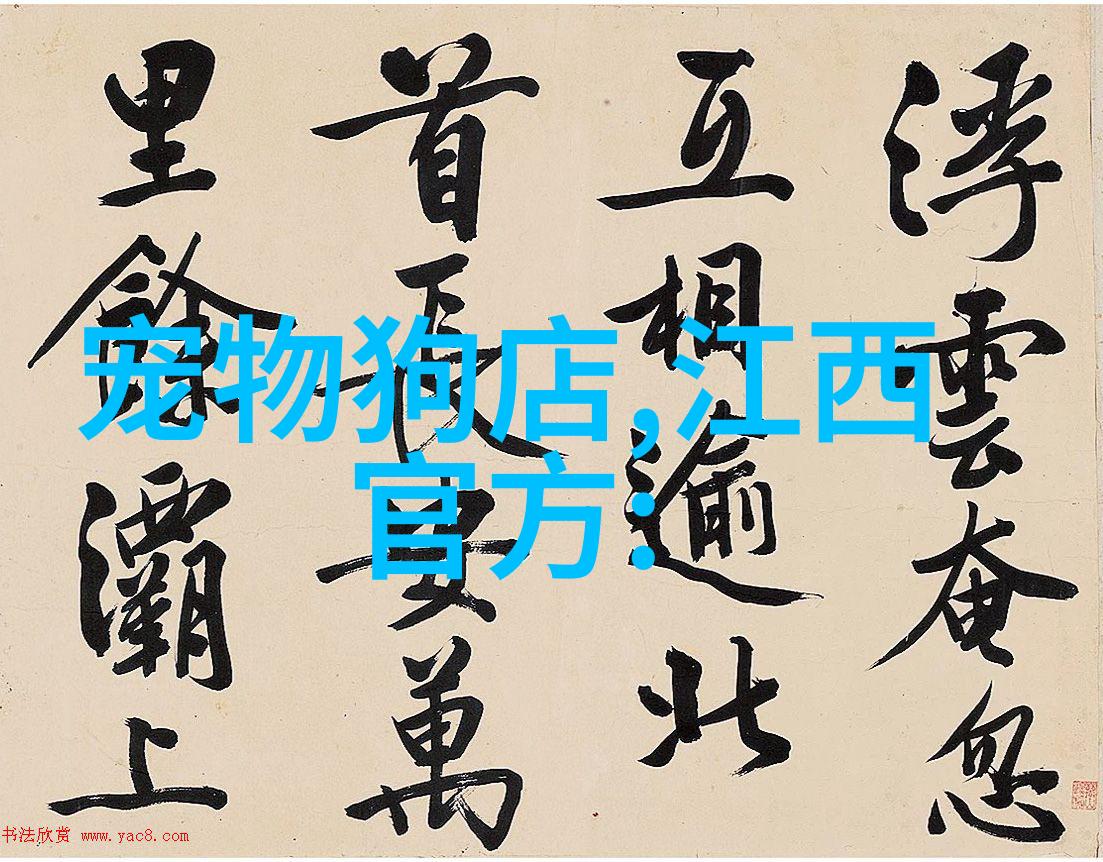 浮雲奄忽
互相逾北
首長安萬
里餘灞上
宠物狗店,江西
官方:
书法欣赏 www.yac8.com